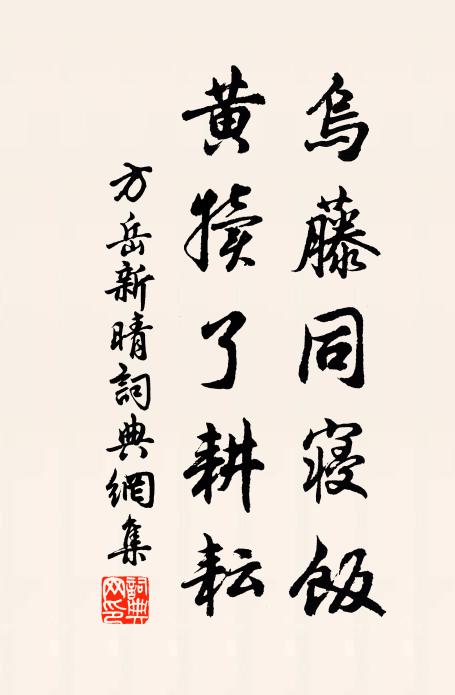 烏藤同寢飯
黃犢了耕耘
方岳新晴詞典網集
詞典網印